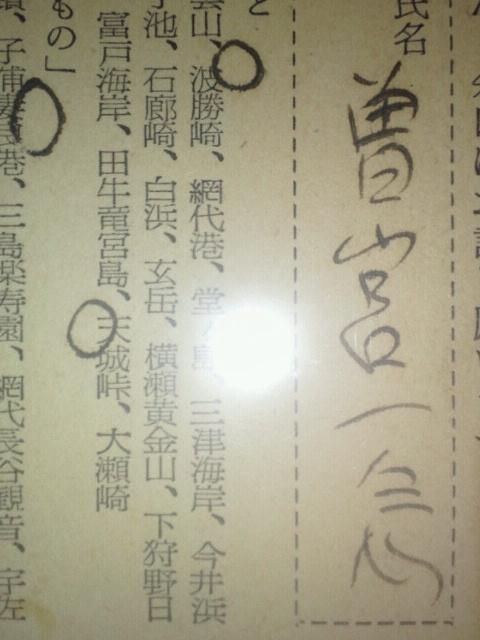 氏名
曽宮一念
と
雲山、波勝崎、網代港、堂ヶ島、三津海岸、今井浜
池、石廊崎、白浜、玄岳、横瀬黄金山、下狩野日
富戸海岸、田牛竜宮島、天城峠、大瀬崎
もの」
子浦妻良港、三島楽寿園、網代長谷観音、宇左